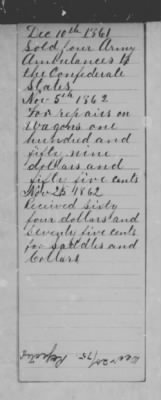 Dec 10th 1861
Sold four Army
Ambulances to
the Confederate
States
Nov 5th 1862
For repaires on
Wagons one
hundred and
fifty nine
dollars and
fifty five cents
Nov 25 1862
Recived sixty
four dollars and
seventy five cents
for Saddles and
Collars
Rejected
Dec 20/75